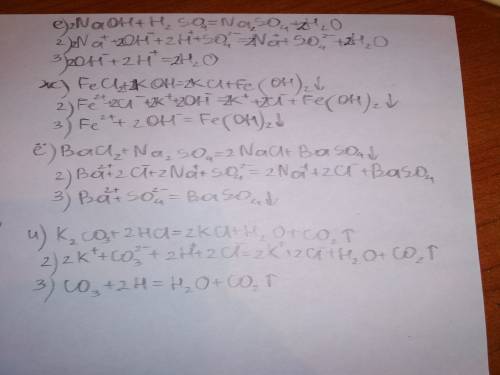 е) 2NaOH + H₂SO₄ = Na₂SO₄ + 2H₂O
2) 2Na⁺ + 2OH⁻ + 2H⁺ + SO₄²⁻ = 2Na⁺ + SO₄²⁻ + 2H₂O
3) 2OH⁻ + 2H⁺ = 2H₂O
ж) FeCl₂ + 2KOH = 2KCl + Fe(OH)₂↓
2) Fe²⁺ + 2Cl⁻ + 2K⁺ + 2OH⁻ = 2K⁺ + 2Cl⁻ + Fe(OH)₂↓
3) Fe²⁺ + 2OH⁻ = Fe(OH)₂↓
ё) BaCl₂ + Na₂SO₄ = 2NaCl + BaSO₄↓
2) Ba²⁺ + 2Cl⁻ + 2Na⁺ + SO₄²⁻ = 2Na⁺ + 2Cl⁻ + BaSO₄
3) Ba²⁺ + SO₄²⁻ = BaSO₄↓
и) K₂CO₃ + 2HCl = 2KCl + H₂O + CO₂↑
2) 2K⁺ + CO₃²⁻ + 2H⁺ + 2Cl = 2K⁺ + 2Cl⁻ + H₂O + CO₂↑
3) CO₃ + 2H = H₂O + CO₂↑